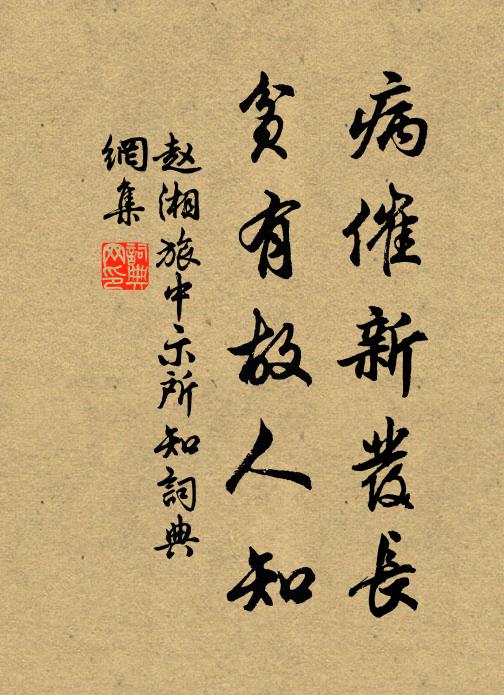 病催新發長
貧有故人知
赵湘旅中示所知詞典
網集
詞典
网印